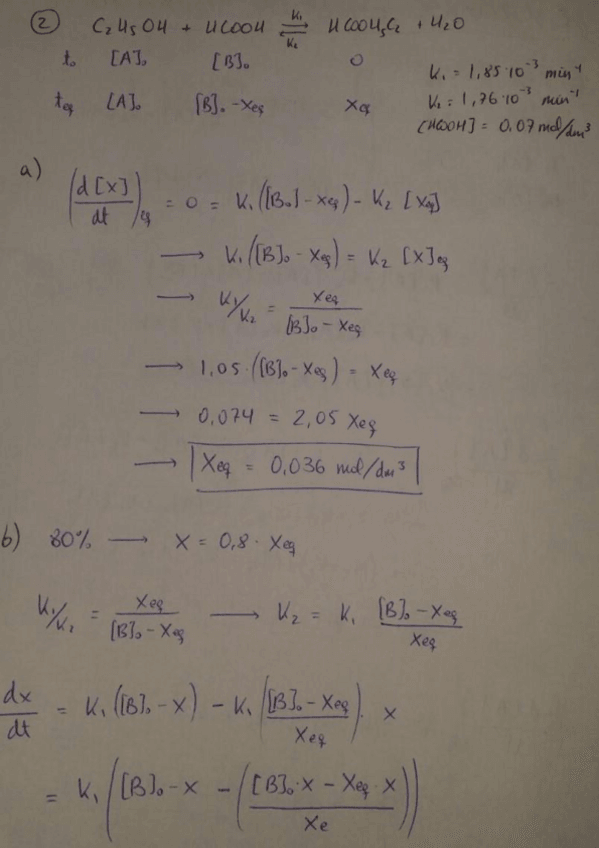 ② C₂H₅OH + HCOOH ⇌ HCOOH₅C₂ + H₂O
K₁
K₂
t₀ [A]₀ [B]₀ 0
t_eq [A]₀ [B]₀ - x_eq x_eq
K₁ = 1,85·10⁻³ min⁻¹
K₂ = 1,76·10⁻³ min⁻¹
[HCOOH] = 0,07 mol/dm³
a) (d[x]/dt)_eq = 0 = K₁([B₀] - x_eq) - K₂ [x_eq]
→ K₁([B]₀ - x_eq) = K₂ [x]_eq
→ K₁/K₂ = x_eq/([B]₀ - x_eq)
→ 1,05·([B]₀ - x_eq) = x_eq
→ 0,074 = 2,05 x_eq
→ x_eq = 0,036 mol/dm³
b) 80% → x = 0,8 · x_eq
K₁/K₂ = x_eq/([B]₀ - x_eq) → K₂ = K₁ ([B]₀ - x_eq)/x_eq
dx/dt = K₁([B]₀ - x) - K₁(([B]₀ - x_eq)/x_eq) · x
= K₁([B]₀ - x - (([B]₀·x - x_eq·x)/x_e))